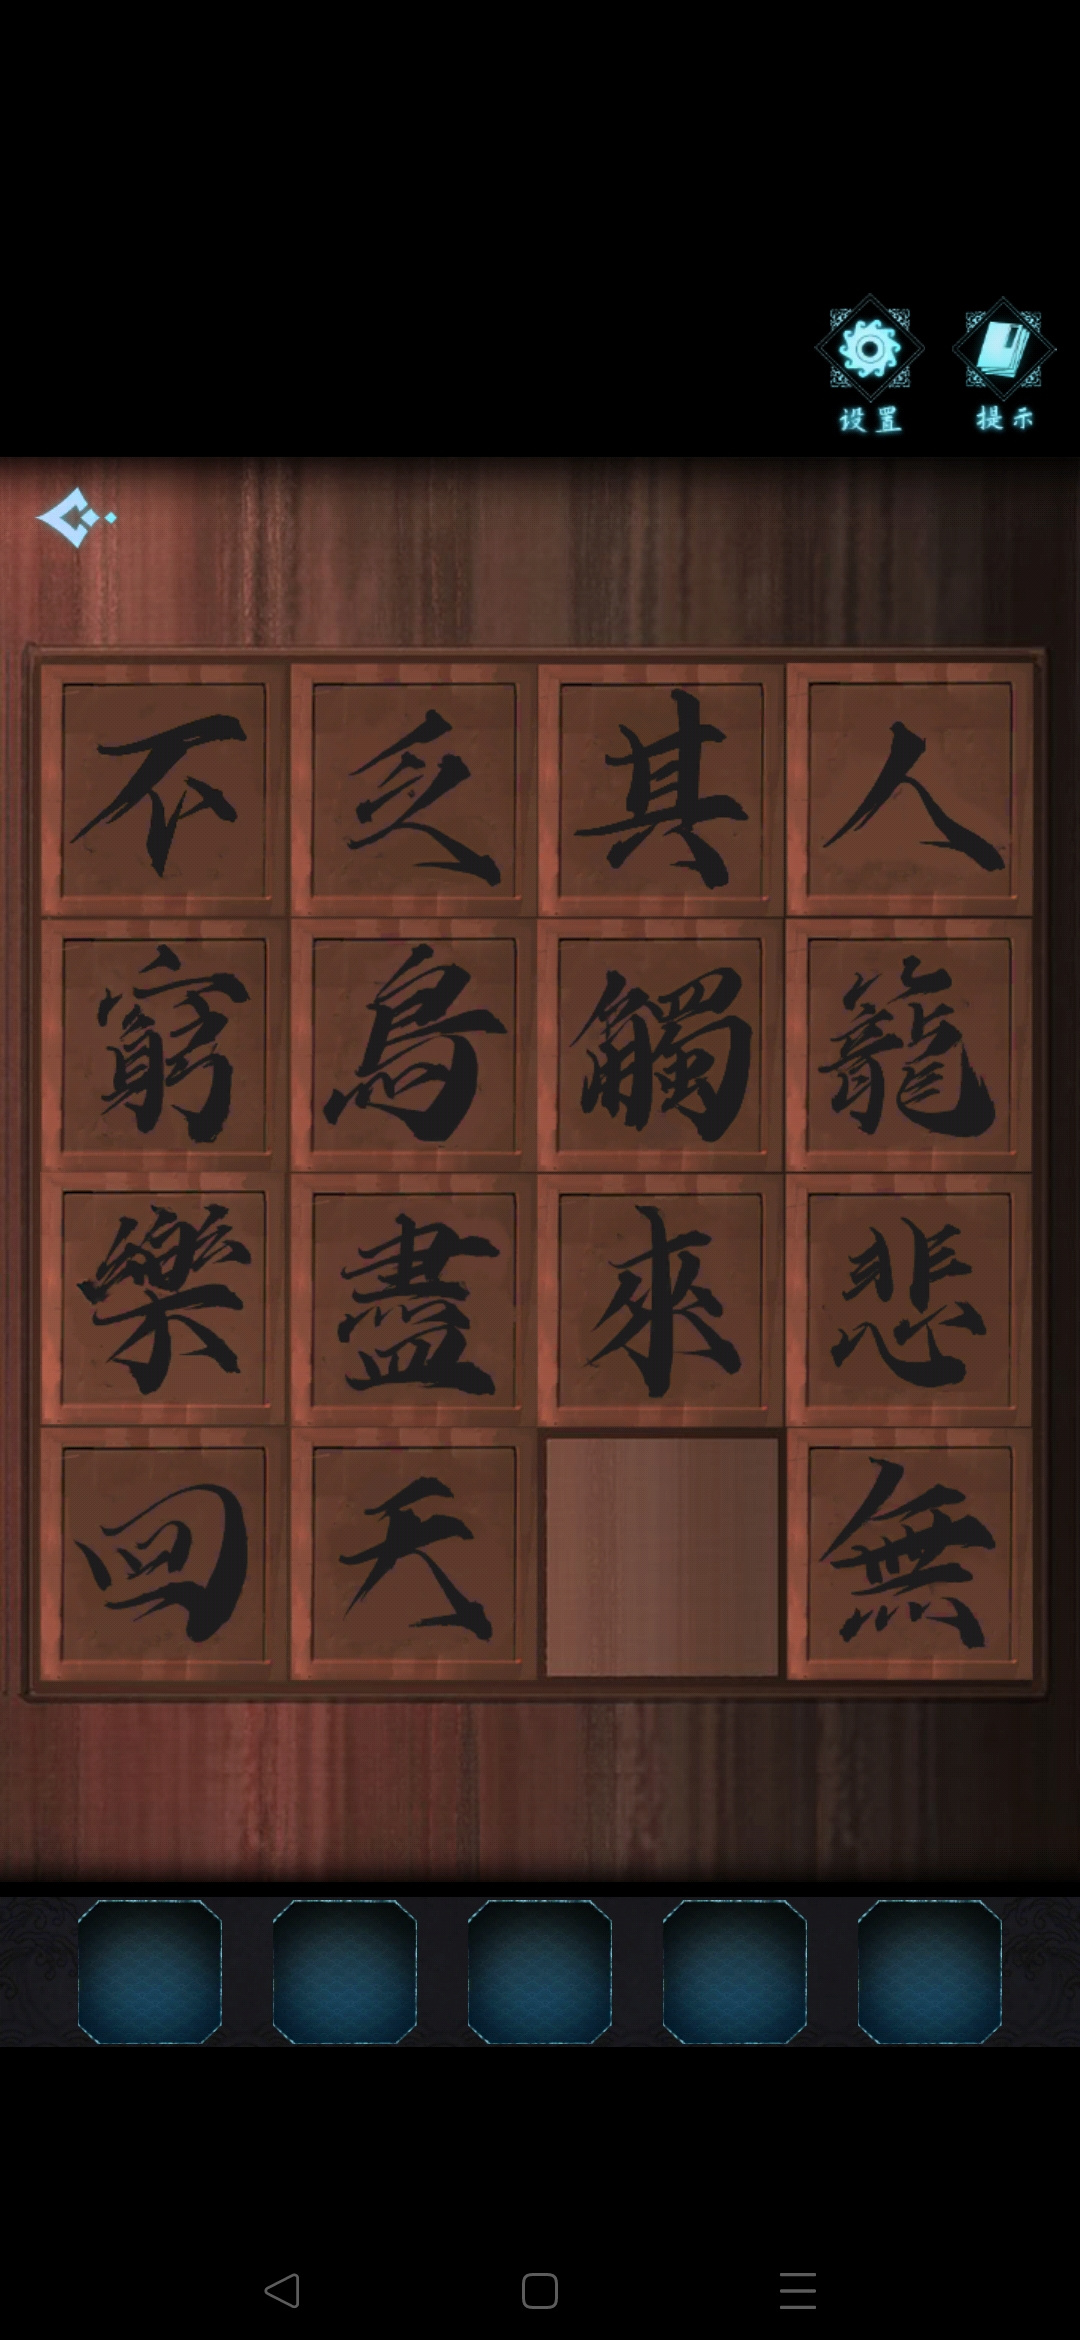 设置 提示
不乏其人
窮鳥觸籠
樂盡來悲
回天無